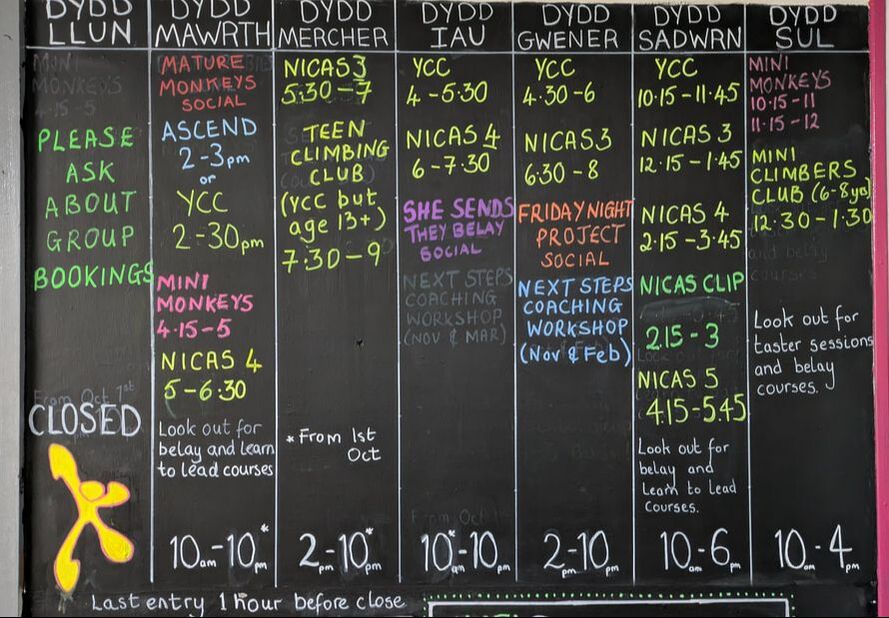 DYDD
LLUN
MINI
MONKEYS
4.15-5
PLEASE
ASK
ABOUT
GROUP
BOOKINGS
From Oct 1st
CLOSED
DYDD
MAWRTH
MATURE
MONKEYS
SOCIAL
ASCEND
2-3pm
or
YCC
2-30pm
MINI
MONKEYS
4.15-5
NICAS 4
5-6.30
Look out for
belay and learn
to lead courses
10am-10pm*
DYDD
MERCHER
NICAS 3
5.30-7
TEEN
CLIMBING
CLUB
(YCC but
age 13+)
7.30-9
*From 1st
Oct
2pm-10pm*
DYDD
IAU
YCC
4-5.30
NICAS 4
6-7.30
SHE SENDS
THEY BELAY
SOCIAL
NEXT STEPS
COACHING
WORKSHOP
(NOV & MAR)
From Oct
10am*-10pm
DYDD
GWENER
YCC
4.30-6
NICAS3
6.30-8
FRIDAY NIGHT
PROJECT
SOCIAL
NEXT STEPS
COACHING
WORKSHOP
(Nov & Feb)
2pm-10pm
DYDD
SADWRN
YCC
10.15-11.45
NICAS 3
12.15-1.45
NICAS 4
2.15-3.45
NICAS CLIP
2.15-3
NICAS 5
4.15-5.45
Look out for
belay and
Learn to Lead
courses.
10am-6pm
DYDD
SUL
MINI
MONKEYS
10.15-11
11.15-12
MINI
CLIMBERS
CLUB (6-8yo)
12.30-1.30
and belay
courses
Look out for
taster sessions
and belay
courses.
10am-4pm
Last entry 1 hour before close